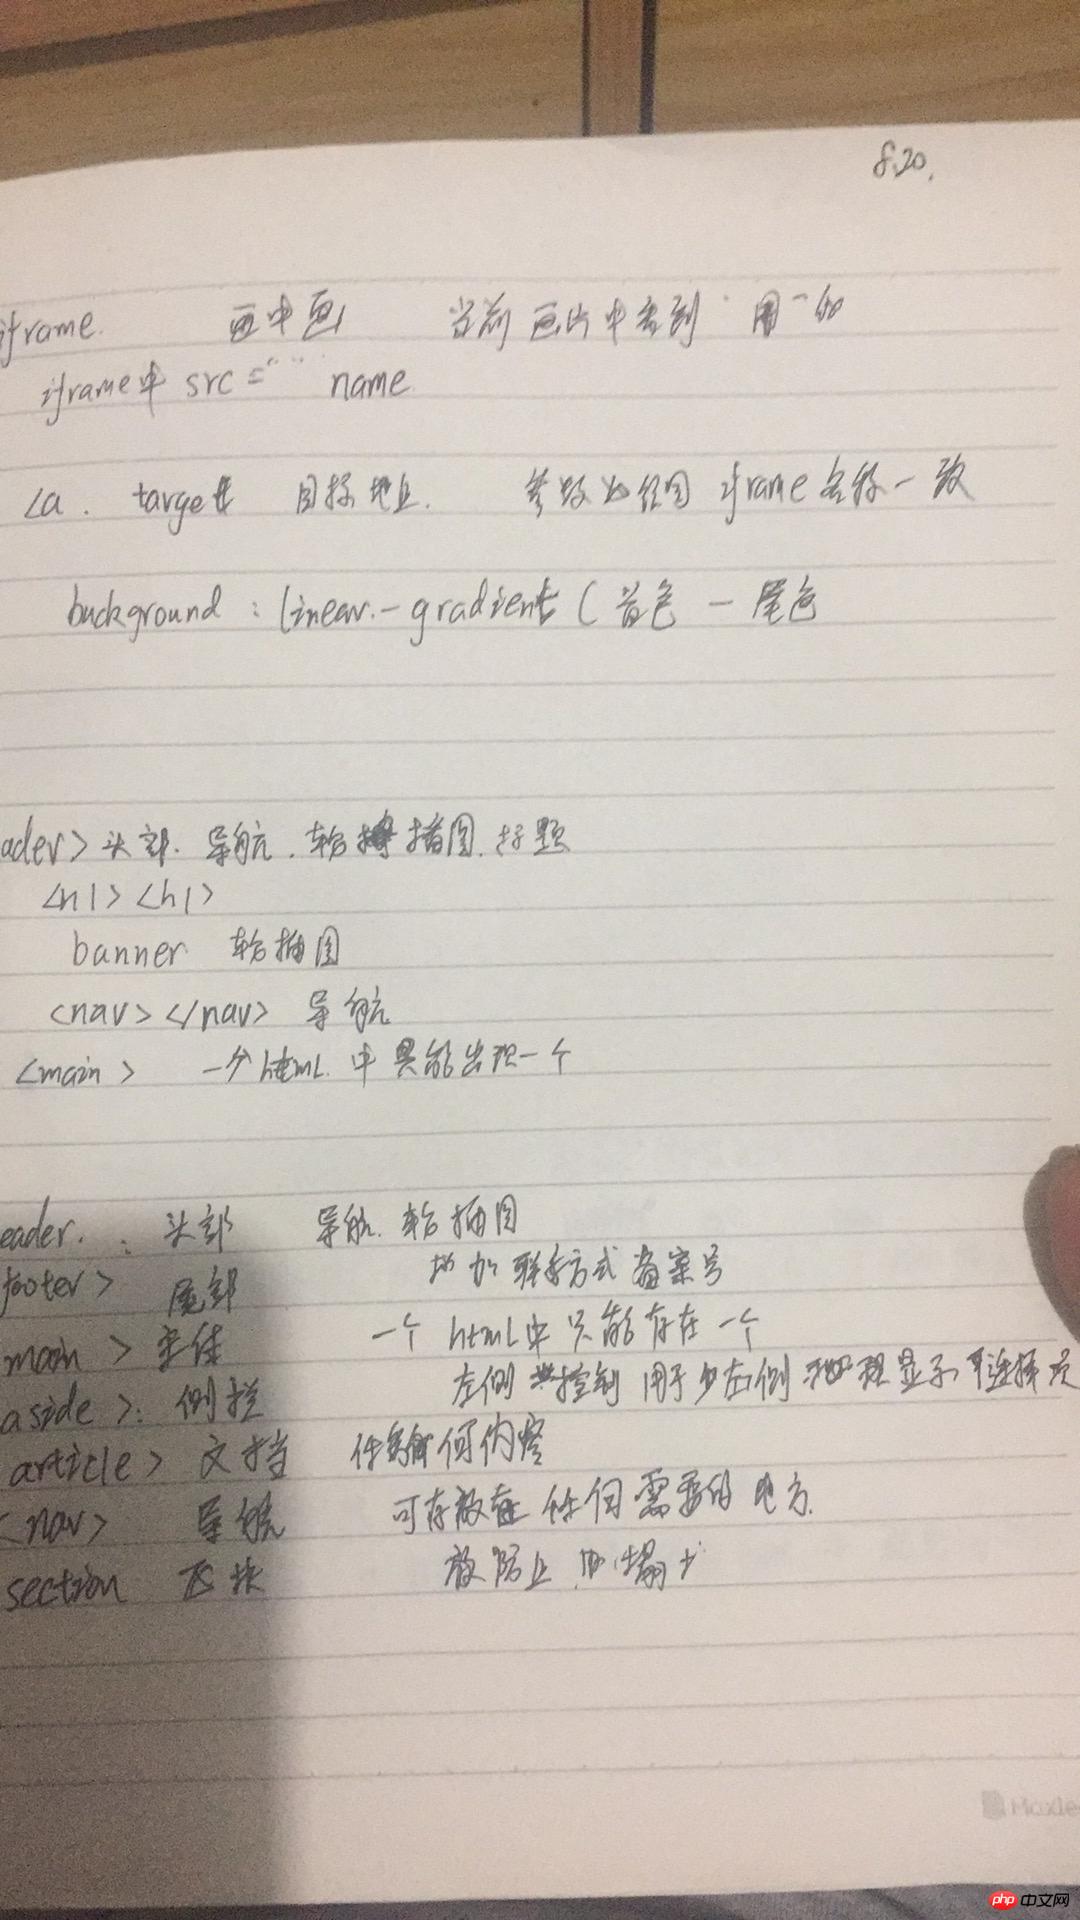 8.20.
iframe. 画中画 当前画片中看到 用一个
iframe中 src="" name
<a. target 目标地址. 参数必须同iframe名称一致
background : linear-gradient ( 首色 - 尾色
ader> 头部. 导航. 轮播图. 标题
<h1> <h1>
banner 轮播图
<nav> </nav> 导航
<main> 一个html中只能出现一个
eader. : 头部 导航. 轮播图
footer> 尾部 联系方式 备案号
main> 主体 一个html中只能存在一个
aside>: 侧栏 左侧 控制 用于 左右侧 显示 可选择项
article> 文档 任何内容
<nav> 导航 可存放在任何需要的地方.
section 区块 放防止 塌
Maxle
php中文网